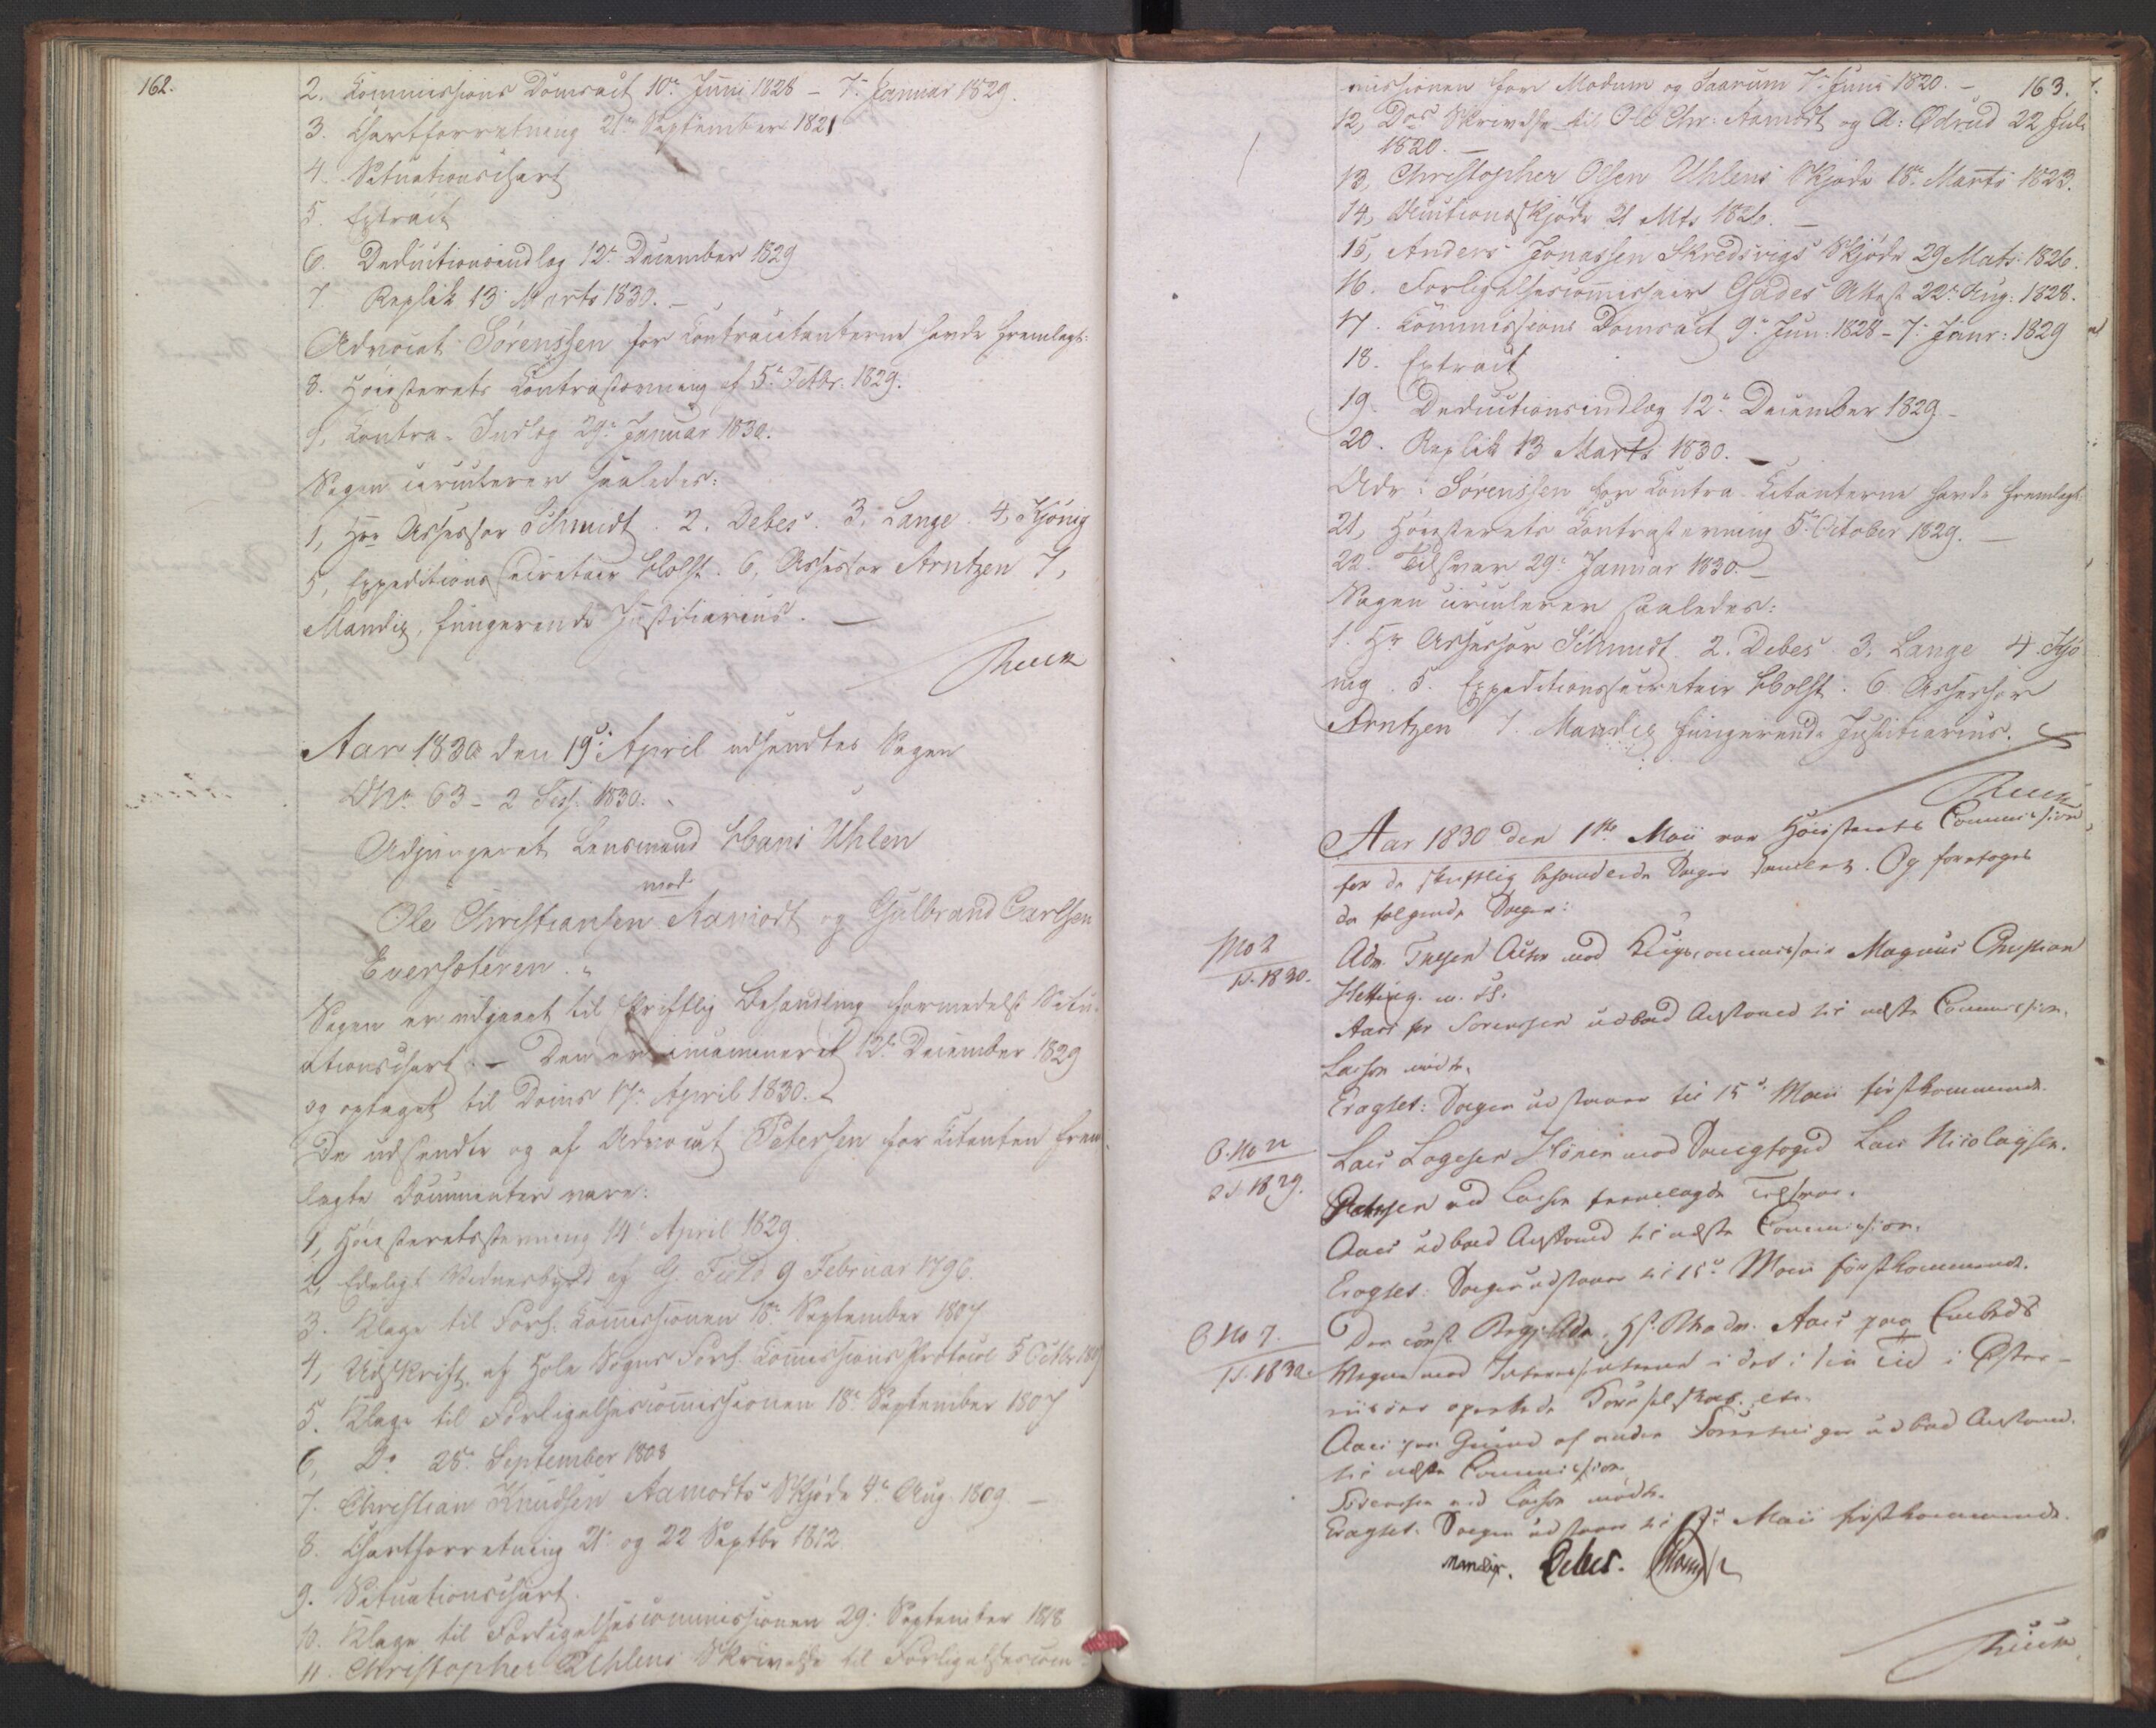 162.
2. Commissions Domsact 10de Juni 1828 – 7de Januar 1829.
3. Chartforretning 21de September 1821
4. Situationschart
5. Extract
6. Deductionsindlæg 12te December 1829
7. Replik 13 Marts 1830. –
Advocat Sörenssen for Contracitanterne havde fremlagt:
8. Höiesterets Contrastævning af 5te Octbr. 1829.
9, Contra-Indlæg 29de Januar 1830.
Sagen circulerer saaledes:
1, Hrr Assessor Schmidt. 2. Debes. 3. Lange. 4, Kjönig
5, Expeditions Secretair Holst. 6, Assessor Arntzen 7,
Mandix, fungerende Justitiarius. —
Aar 1830 den 19de April udsendtes Sagen
LNo 63 – 2 Sess. 1830.
Adjungeret Lensmand Hans Uhlen
mod
Ole Christiansen Aamodt og Gulbrand Carlsen
Eversæteren.
Sagen er udgaaet til skriftlig Behandling formedelst Situ-
ationschart. – Den er incamineret 12te December 1829
og optaget til Doms 17de April 1830.
De udsendte og af Advocat Petersen for Citanten frem-
lagte Documenter vare:
1, Höiesteretsstævning 14de April 1829.
2, Edeligt Vidnesbyrd af G. 9 Februar 1796.
3. Klage til Forl. Commissionen 18de September 1807
4, Udskrift af Hole Sogns Forl. Commissions Protocol 5 Octbr 1807
5. Klage til Forligelsescommissionen 18de September 1807
6, Do 28de September 1808
7. Christian Knudsen Aamodts Skjöde 4de Aug. 1809. –
8. Chartforretning 21de og 22 Septbr 1812
9. Situationschart.
10. Klage til Forligelsescommissionen 29de September 1818
11. Christopher Uhlens Skrivelse til Forligelsescom-
163.
missionen for Modum og 7de Juni 1820. –
12, Des Skrivelse til Ole Chr. Aamodt og A. Ödrud 22 Juli
1820. —
13, Christopher Olsen Uhlens Skjöde 18de Marts 1823.
14, Auctionsskjöde 21 Mts 1826. —
15, Anders Jonassen Skredsvigs Skjöde 29 Mats. 1826.
16. Forligelsescommissair Gades Attest 22de Aug. 1828.
17. Commissions Domsact 9de Jun. 1828 – 7de Janr. 1829
18. Extract
19. Deductionsindlæg 12te December 1829 –
20. Replik 13 Marts 1830. –
Adv. Sörenssen for Contra-Citanterne havde fremlagt:
21, Höiesterets Contrastævning 5te October 1829. —
22. Tilsvar 29de Januar 1830. –
Sagen circulerer saaledes:
1. Hr Assessor Schmidt 2. Debes 3. Lange 4. Kjö-
nig. 5. Expeditionssecretair Holst. 6 Assessor
Arntzen 7. Mandix fungerende Justitiarius.
Aar 1830 den 1ste Mai var Höiesterets Commission
for de skriftlig behandlede Sager samlet. Og foretoges
da følgende Sager:
No 2
1 S. 1830.
Adv. Actor mod Krigscommissair Magnus Christian
Hetting. m. fl.
Aars for Sorenssen udbad Anstand til næste Commission.
Lasson mödte.
Eragtet: Sagen udstaaer til 15de Mai förstkommende.
2 S. 1829.
Lars Lagesen mod Sorenskr Lars Nicolaysen.
Petersen ved Lasson fremlagde Tilsvar.
Aars udbad Anstand til næste Commission.
Eragtet: Sagen udstaaer til 15de Mai förstkommende.
No 7.
1 S. 1830.
Den const. Regj. Adv. Aars paa Embeds
Vegne mod Interessenterne i det i sin Tid i Öster-
riisöer oprettede etc.
Aars paa Grund af andre Forretninger udbad Anstand
til næste Commission
Sörenssen ved Lasson mödte.
Eragtet. Sagen udstaaer til 15de Mai förstkommende.
Mandix. Debes.